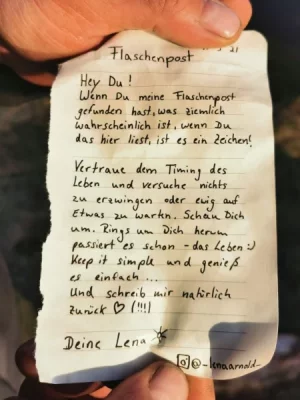 Flaschenpost
Hey Du!
Wenn Du meine Flaschenpost
gefunden hast, was ziemlich
wahrscheinlich ist, wenn Du
das hier liest, ist es ein Zeichen!
Vertraue dem Timing des
Leben und versuche nichts
zu erzwingen oder ewig auf
Etwas zu wartn. Schau Dich
um. Rings um Dich herum
passiert es schon - das Leben :)
Keep it simple und genieß
es einfach ...
Und schreib mir natürlich
zurück ♡ (!!!)
Deine Lena
@_lenaarnold_